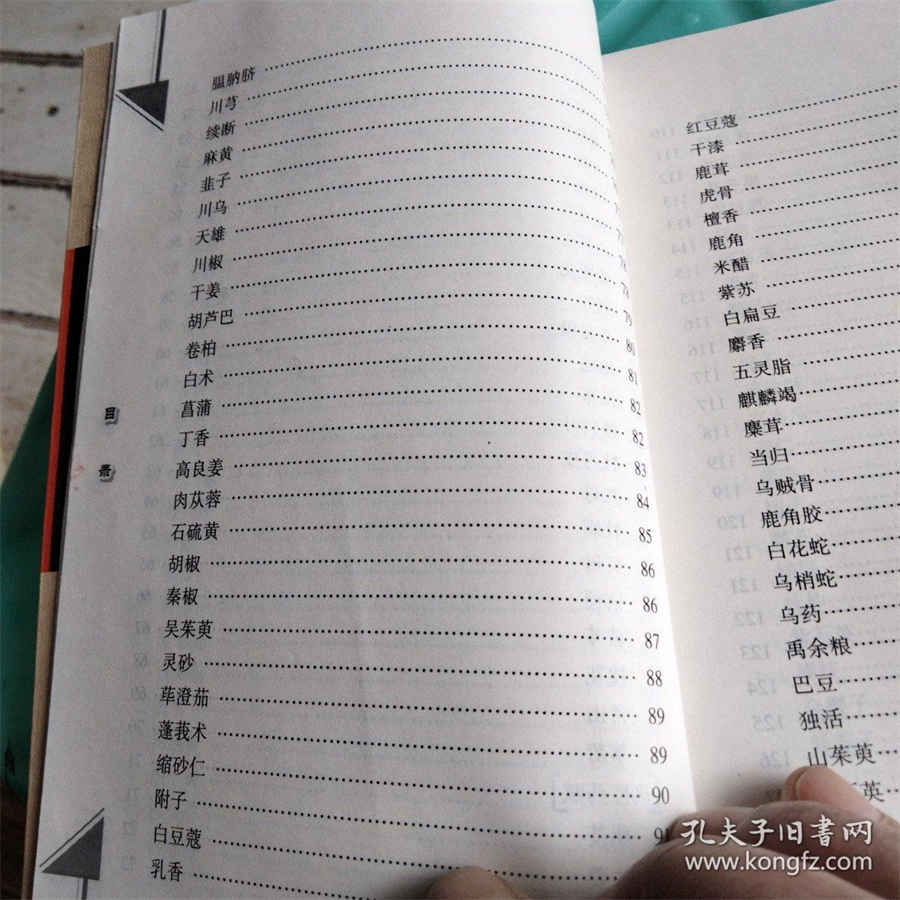 腽肭脐
川芎
续断
麻黄
韭子
川乌
天雄
川椒
干姜
胡芦巴 79
卷柏 80
白术 81
菖蒲 82
丁香 82
高良姜 83
肉苁蓉 84
石硫黄 85
胡椒 86
秦椒 86
吴茱萸 87
灵砂 88
荜澄茄 89
蓬莪术 89
缩砂仁 90
附子 91
白豆蔻
乳香
目
录
红豆蔻
干漆
鹿茸
虎骨
檀香
鹿角
米醋
紫苏
白扁豆
麝香
五灵脂
麒麟竭
麋茸
当归
乌贼骨
鹿角胶
白花蛇
乌梢蛇
乌药
禹余粮
巴豆
独活
山茱萸
英
孔夫子旧書网
www.kongfz.com